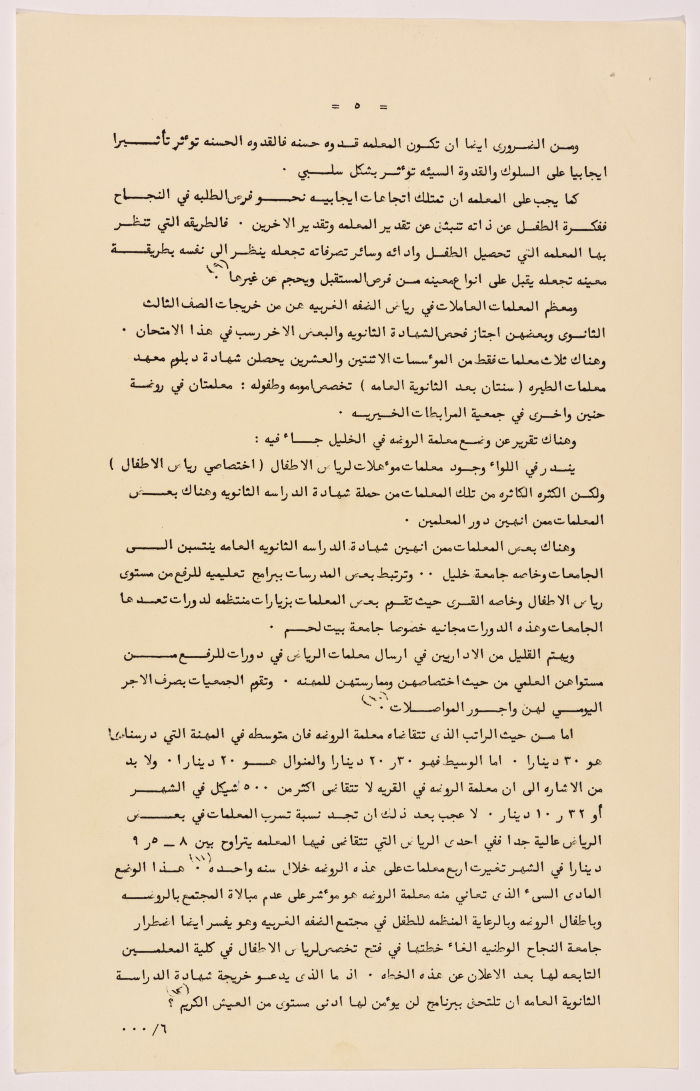 = ٥ =
ومن الضرورى ايضا ان تكون المعلمه قدوه حسنه فالقدوه الحسنه توءثر تأثيرا
ايجابيا على السلوك والقدوة السيئه توءثر بشكل سلبي ٠
كما يجب على المعلمه ان تمتلك اتجاهات ايجابيه نحو فرص الطلبه في النجاح
ففكرة الطفل عن ذاته تنبثق عن تقدير المعلمه وتقدير الاخرين ٠ فالطريقه التي تنظر
بها المعلمه التي تحصيل الطفل وادائه وسائر تصرفاته تجعله ينظر الى نفسه بطريقة
معينه تجعله يقبل على انواع معينه من فرص المستقبل ويحجم عن غيرها (٩) ٠
ومعظم المعلمات العاملات في رياض الضفه الغربيه هن من خريجات الصف الثالث
الثانوى وبعضهن اجتاز فحص الشهادة الثانويه والبعض الاخر رسب في هذا الامتحان ٠
وهناك ثلاث معلمات فقط من الموءسسات الاثنتين والعشرين يحصلن شهادة دبلوم معهد
معلمات الطيره ( سنتان بعد الثانوية العامه ) تخصص امومه وطفوله : معلمتان في روضة
حنين واخرى في جمعية المرابطات الخيريه ٠
وهناك تقرير عن وضع معلمة الروضه في الخليل جاء فيه :
يندر في اللواء وجود معلمات موءهلات لرياض الاطفال ( اختصاصي رياض الاطفال )
ولكن الكثره الكاثره من تلك المعلمات من حملة شهادة الدراسه الثانويه وهناك بعض
المعلمات ممن انهين دور المعلمين ٠
وهناك بعض المعلمات ممن انهين شهادة الدراسه الثانويه العامه ينتسبن الى
الجامعات وخاصه جامعة خليل ٠٠ وترتبط بعض المدرسات ببرامج تعليميه للرفع من مستوى
رياض الاطفال وخاصه القرى حيث تقوم بعض المعلمات بزيارات منتظمه لدورات تعدها
الجامعات وهذه الدورات مجانيه خصوصا جامعة بيت لحم ٠
ويهتم القليل من الاداريين في ارسال معلمات الرياض في دورات للرفع من
مستواهن العلمي من حيث اختصاصهن وممارستهن للمهنه ٠ وتقوم الجمعيات بصرف الاجر
اليومي لهن واجور المواصلات (١٠) ٠
اما من حيث الراتب الذى تتقاضاه معلمة الروضه فان متوسطه في المهنة التي درسناها
هو ٣٠ دينارا ٠ اما الوسيط فهو ٣٠ر٢٠ دينارا والمنوال هو ٢٠ دينارا ٠ ولا بد
من الاشاره الى ان معلمة الروضه في القريه لا تتقاضى اكثر من ٥٠٠ شيكل في الشهر
أو ٣٢ر١٠ دينار ٠ لا عجب بعد ذلك ان تجد نسبة تسرب المعلمات في بعض
الرياض عالية جدا ففي احدى الرياض التي تتقاضى فيها المعلمه يتراوح بين ٨ - ٥ر٩
دينارا في الشهر تغيرت اربع معلمات على هذه الروضه خلال سنه واحده (١١) ٠ هذا الوضع
المادى السيء الذى تعاني منه معلمة الروضه هو موءشر على عدم مبالاة المجتمع بالروضه
وباطفال الروضه وبالرعاية المنظمه للطفل في مجتمع الضفه الغربيه وهو يفسر ايضا اضطرار
جامعة النجاح الوطنيه الغاء خطتها في فتح تخصص لرياض الاطفال في كلية المعلمين
التابعه لها بعد الاعلان عن هذه الخطه ٠ اذ ما الذى يدعو خريجة شهادة الدراسة
الثانوية العامه ان تلتحق ببرنامج لن يوءمن لها ادنى مستوى من العيش الكريم (١٢) ؟
٠٠٠/٦